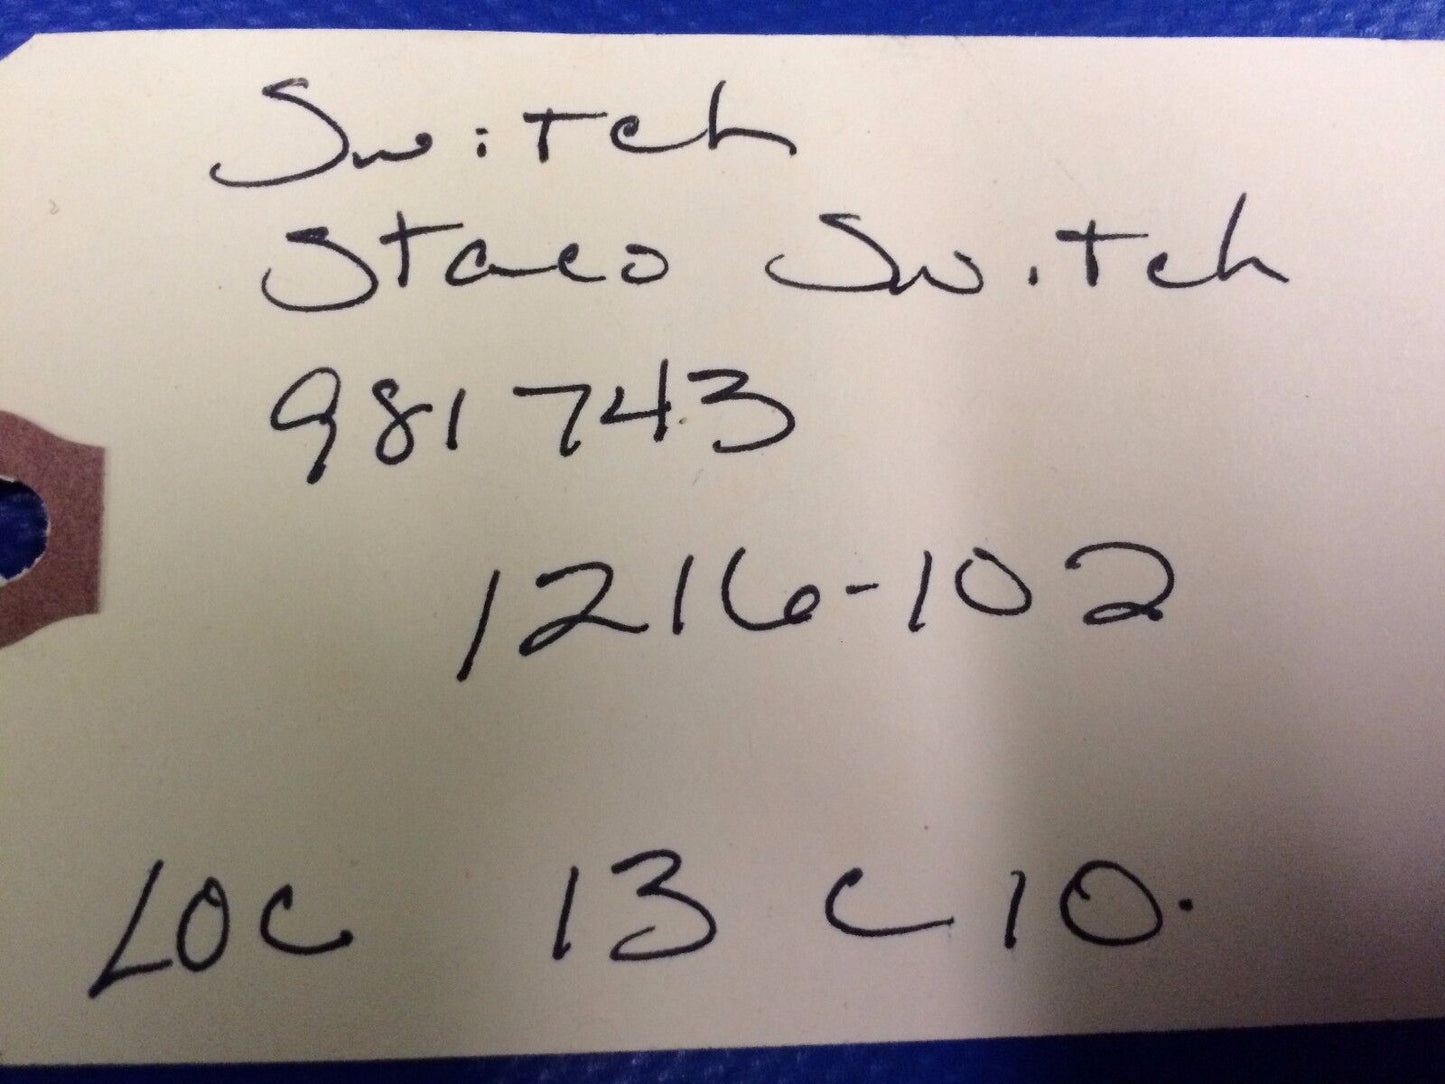 Switch
Staco Switch
981743
1216-102
LOC 13 C 10.